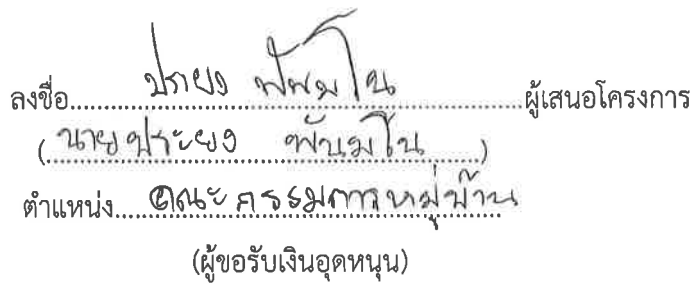 ลงชื่อ ประยง พันมโน ผู้เสนอโครงการ
(นายประยง พันมโน)
ตำแหน่ง คณะกรรมการหมู่บ้าน
(ผู้ขอรับเงินอุดหนุน)